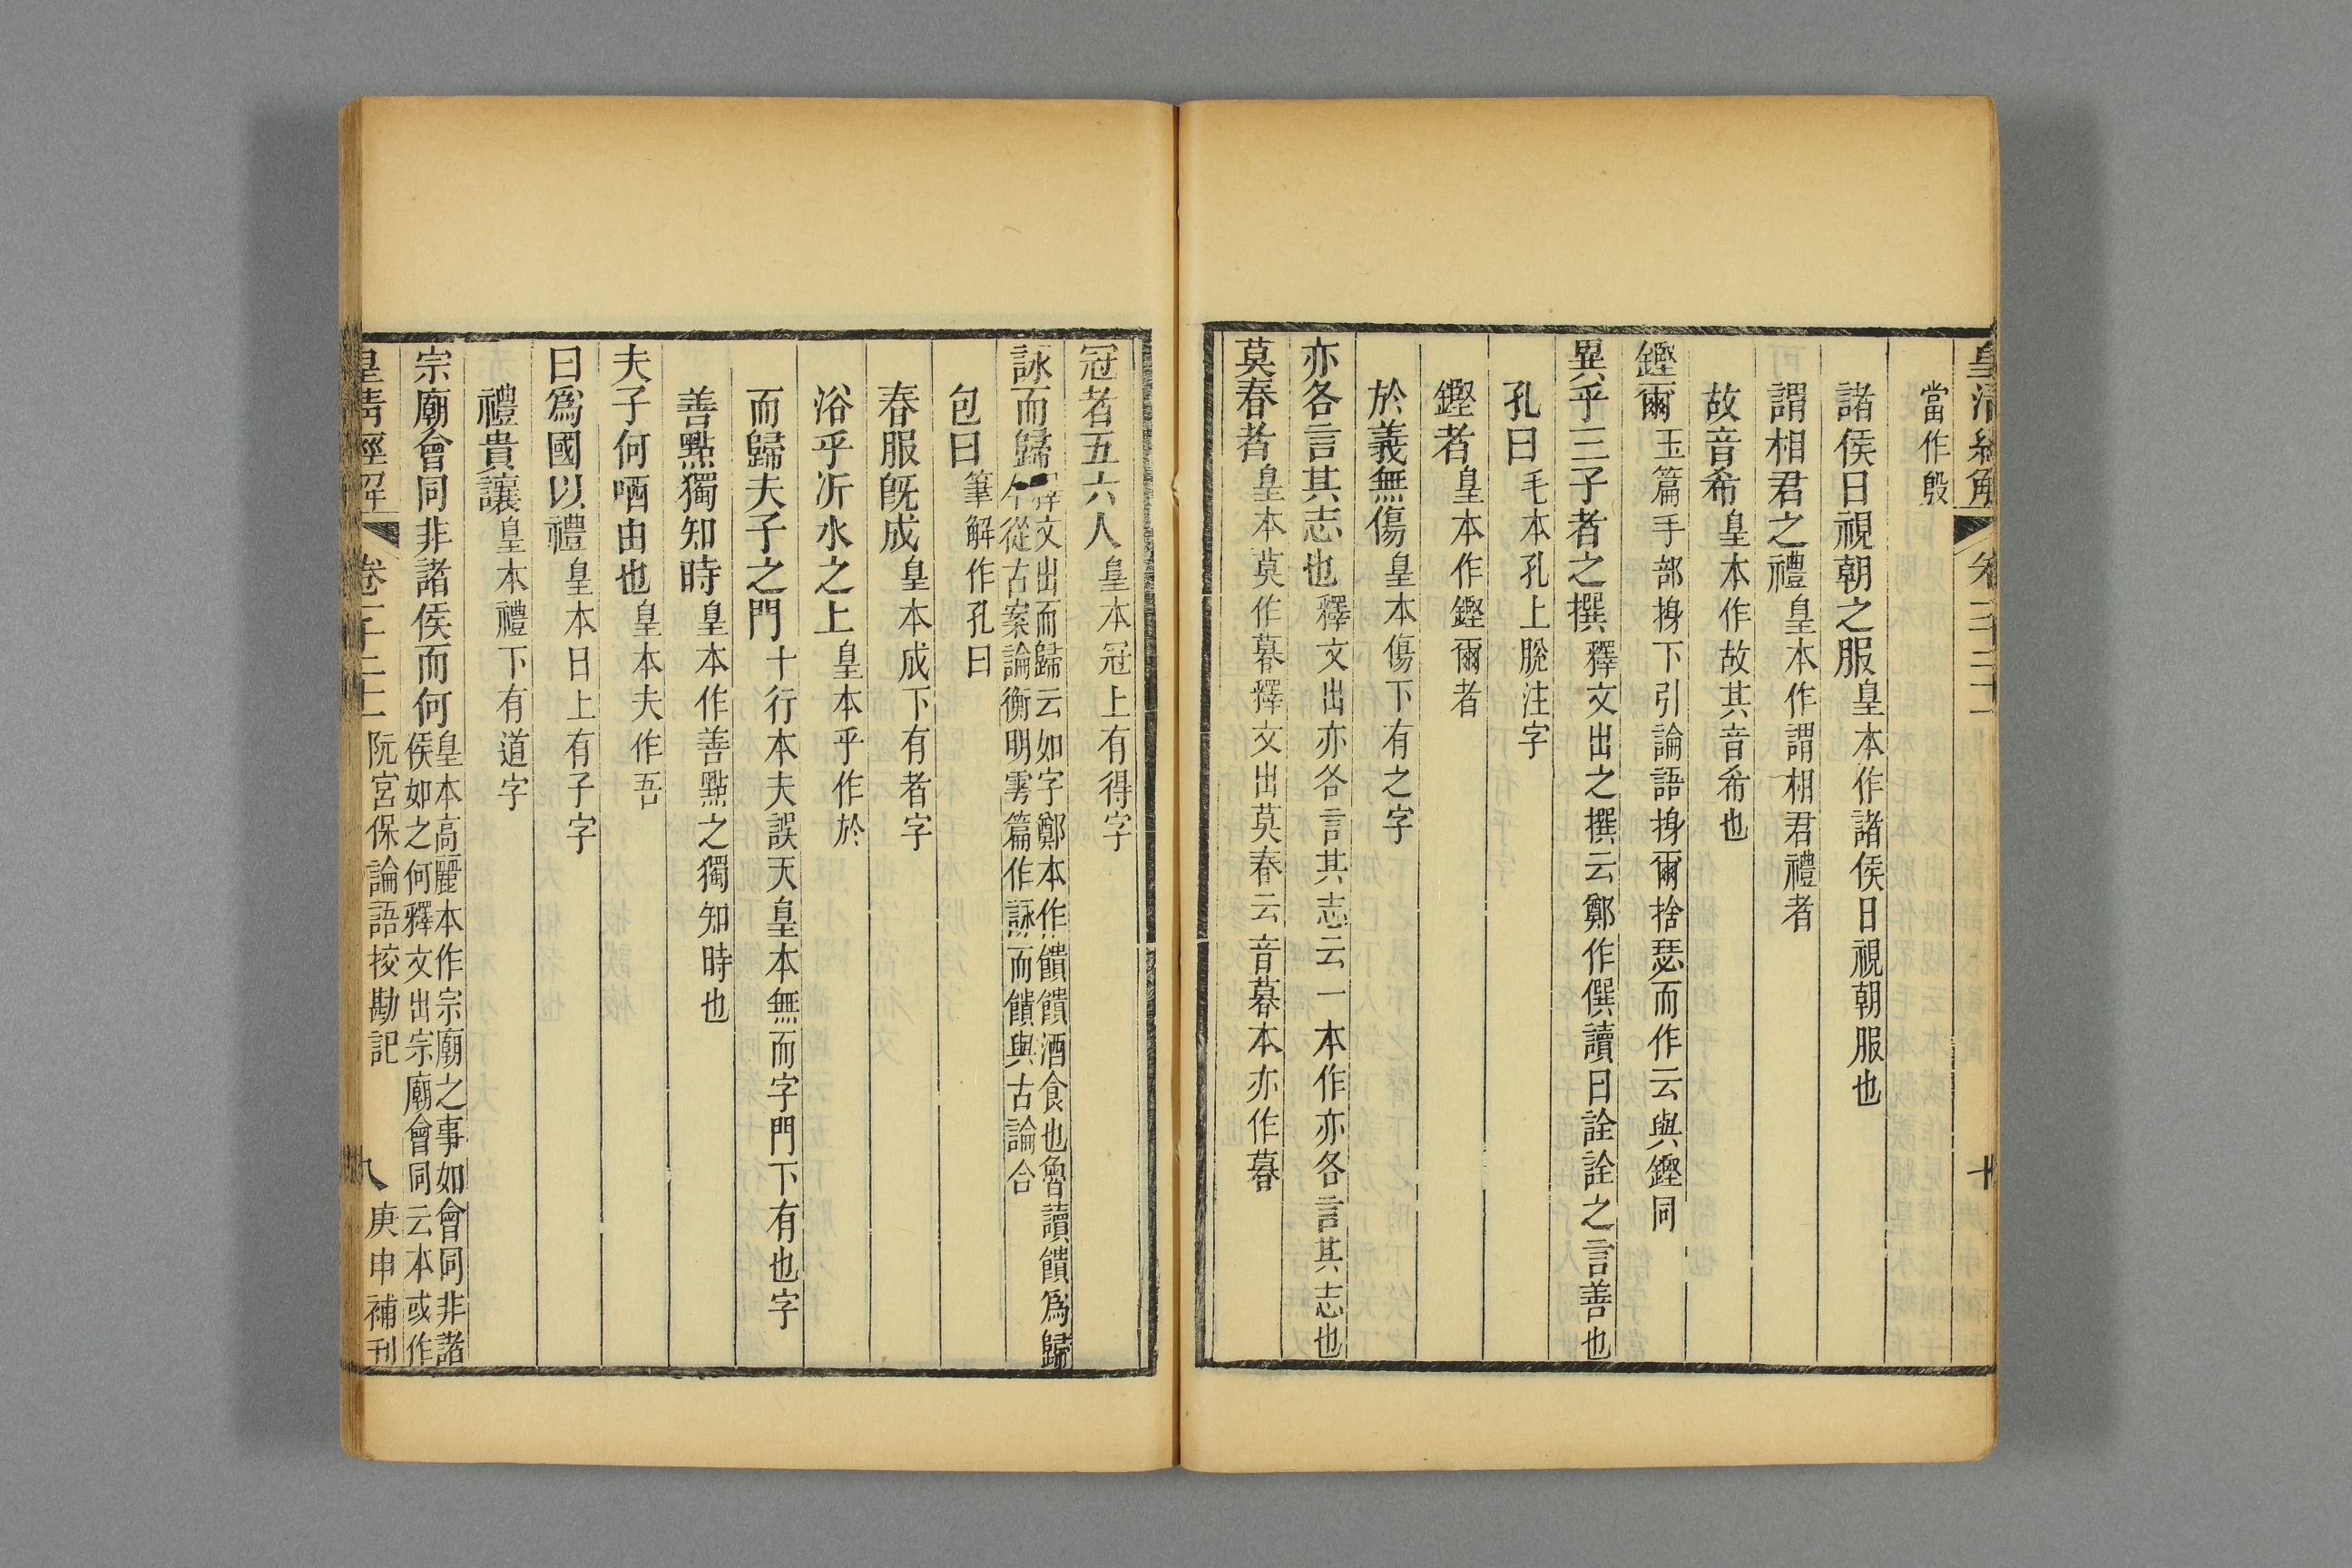 皇清經解 卷一千二十一 十
當作殷
諸侯日視朝之服皇本作諸侯日視朝服也
謂相君之禮皇本作謂相君禮者
故音希皇本作故其音希也
鏗爾玉篇手部摼下引論語摼爾捨瑟而作云與鏗同
異乎三子者之撰釋文出之撰云鄭作僎讀曰詮詮之言善也
孔曰毛本孔上脫注字
鏗者皇本作鏗爾者
於義無傷皇本傷下有之字
亦各言其志也釋文出亦各言其志云一本作亦各言其志也
莫春者皇本莫作暮釋文出莫春云音暮本亦作暮
冠者五六人皇本冠上有得字
詠而歸釋文出而歸云如字鄭本作饋饋酒食也魯讀饋爲歸
今從古案論衡明雩篇作詠而饋與古論合
包曰筆解作孔曰
春服旣成皇本成下有者字
浴乎沂水之上皇本乎作於
而歸夫子之門十行本夫誤天皇本無而字門下有也字
善點獨知時皇本作善點之獨知時也
夫子何哂由也皇本夫作吾
曰爲國以禮皇本曰上有子字
禮貴讓皇本禮下有道字
宗廟會同非諸侯而何皇本高麗本作宗廟之事如會同非諸
侯如之何釋文出宗廟會同云本或作
皇清經解 卷一千二十一 阮宮保論語挍勘記 八 庚申補刊